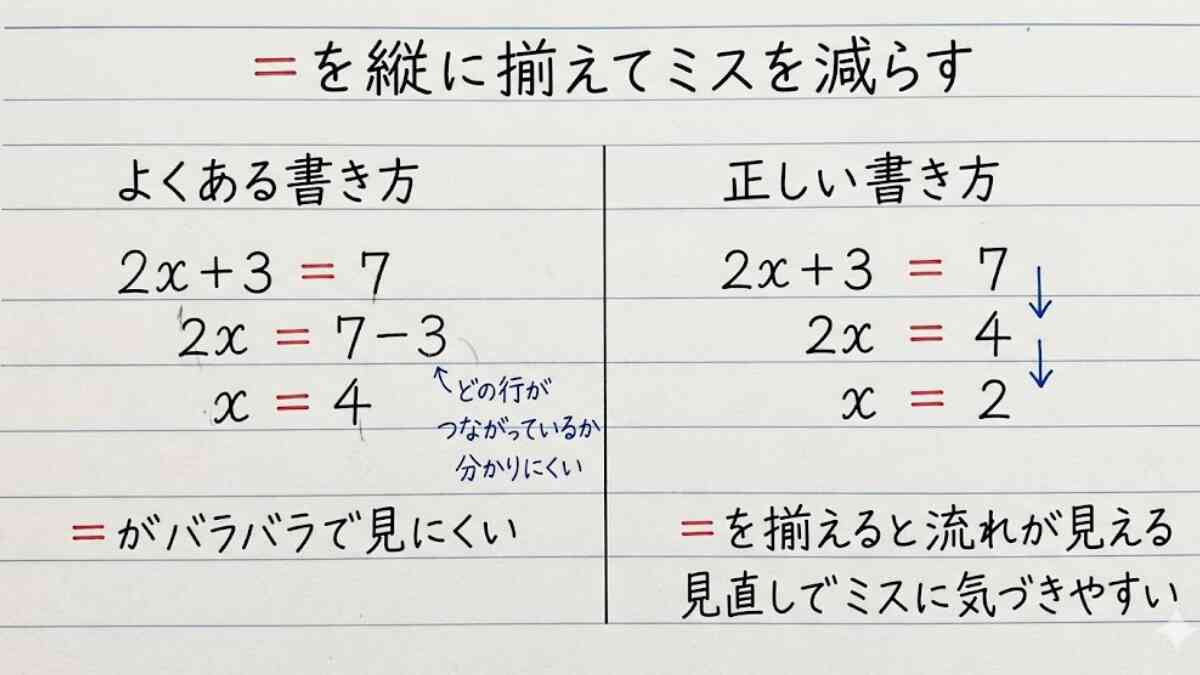 =を縦に揃えてミスを減らす
よくある書き方
2x+3 = 7
2x = 7-3
x = 4
どの行が
つながっているか
分かりにくい
=がバラバラで見にくい
正しい書き方
2x+3 = 7
2x = 4
x = 2
=を揃えると流れが見える
見直しでミスに気づきやすい